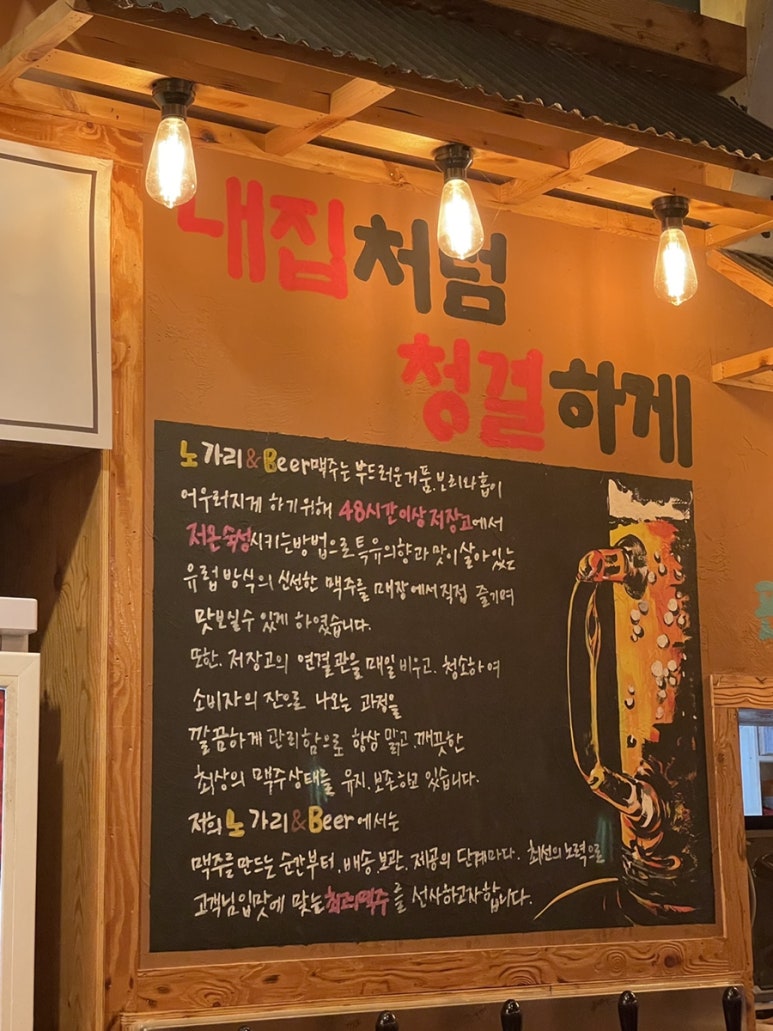 내집처럼
청결하게
노가리&Beer맥주는 부드러운거품.보리와 홉이
어우러지게 하기위해 48시간이상 저장고에서
저온숙성시키는방법으로 특유의향과 맛이 살아있는
유럽 방식의 신선한 맥주를 매장에서 직접 즐기며
맛보실수 있게 하였습니다.
또한. 저장고의 연결관을 매일 비우고. 청소하여
소비자의 잔으로 나오는 과정을
깔끔하게 관리함으로 항상 맑고.깨끗한
최상의 맥주상태를 유지.보존하고 있습니다.
저희 노가리&Beer에서는
맥주를 만드는 순간부터.배송 보관.제공의 단계마다. 최선의 노력으로
고객님 입맛에 맞는 최고의맥주를 선사하고자합니다.